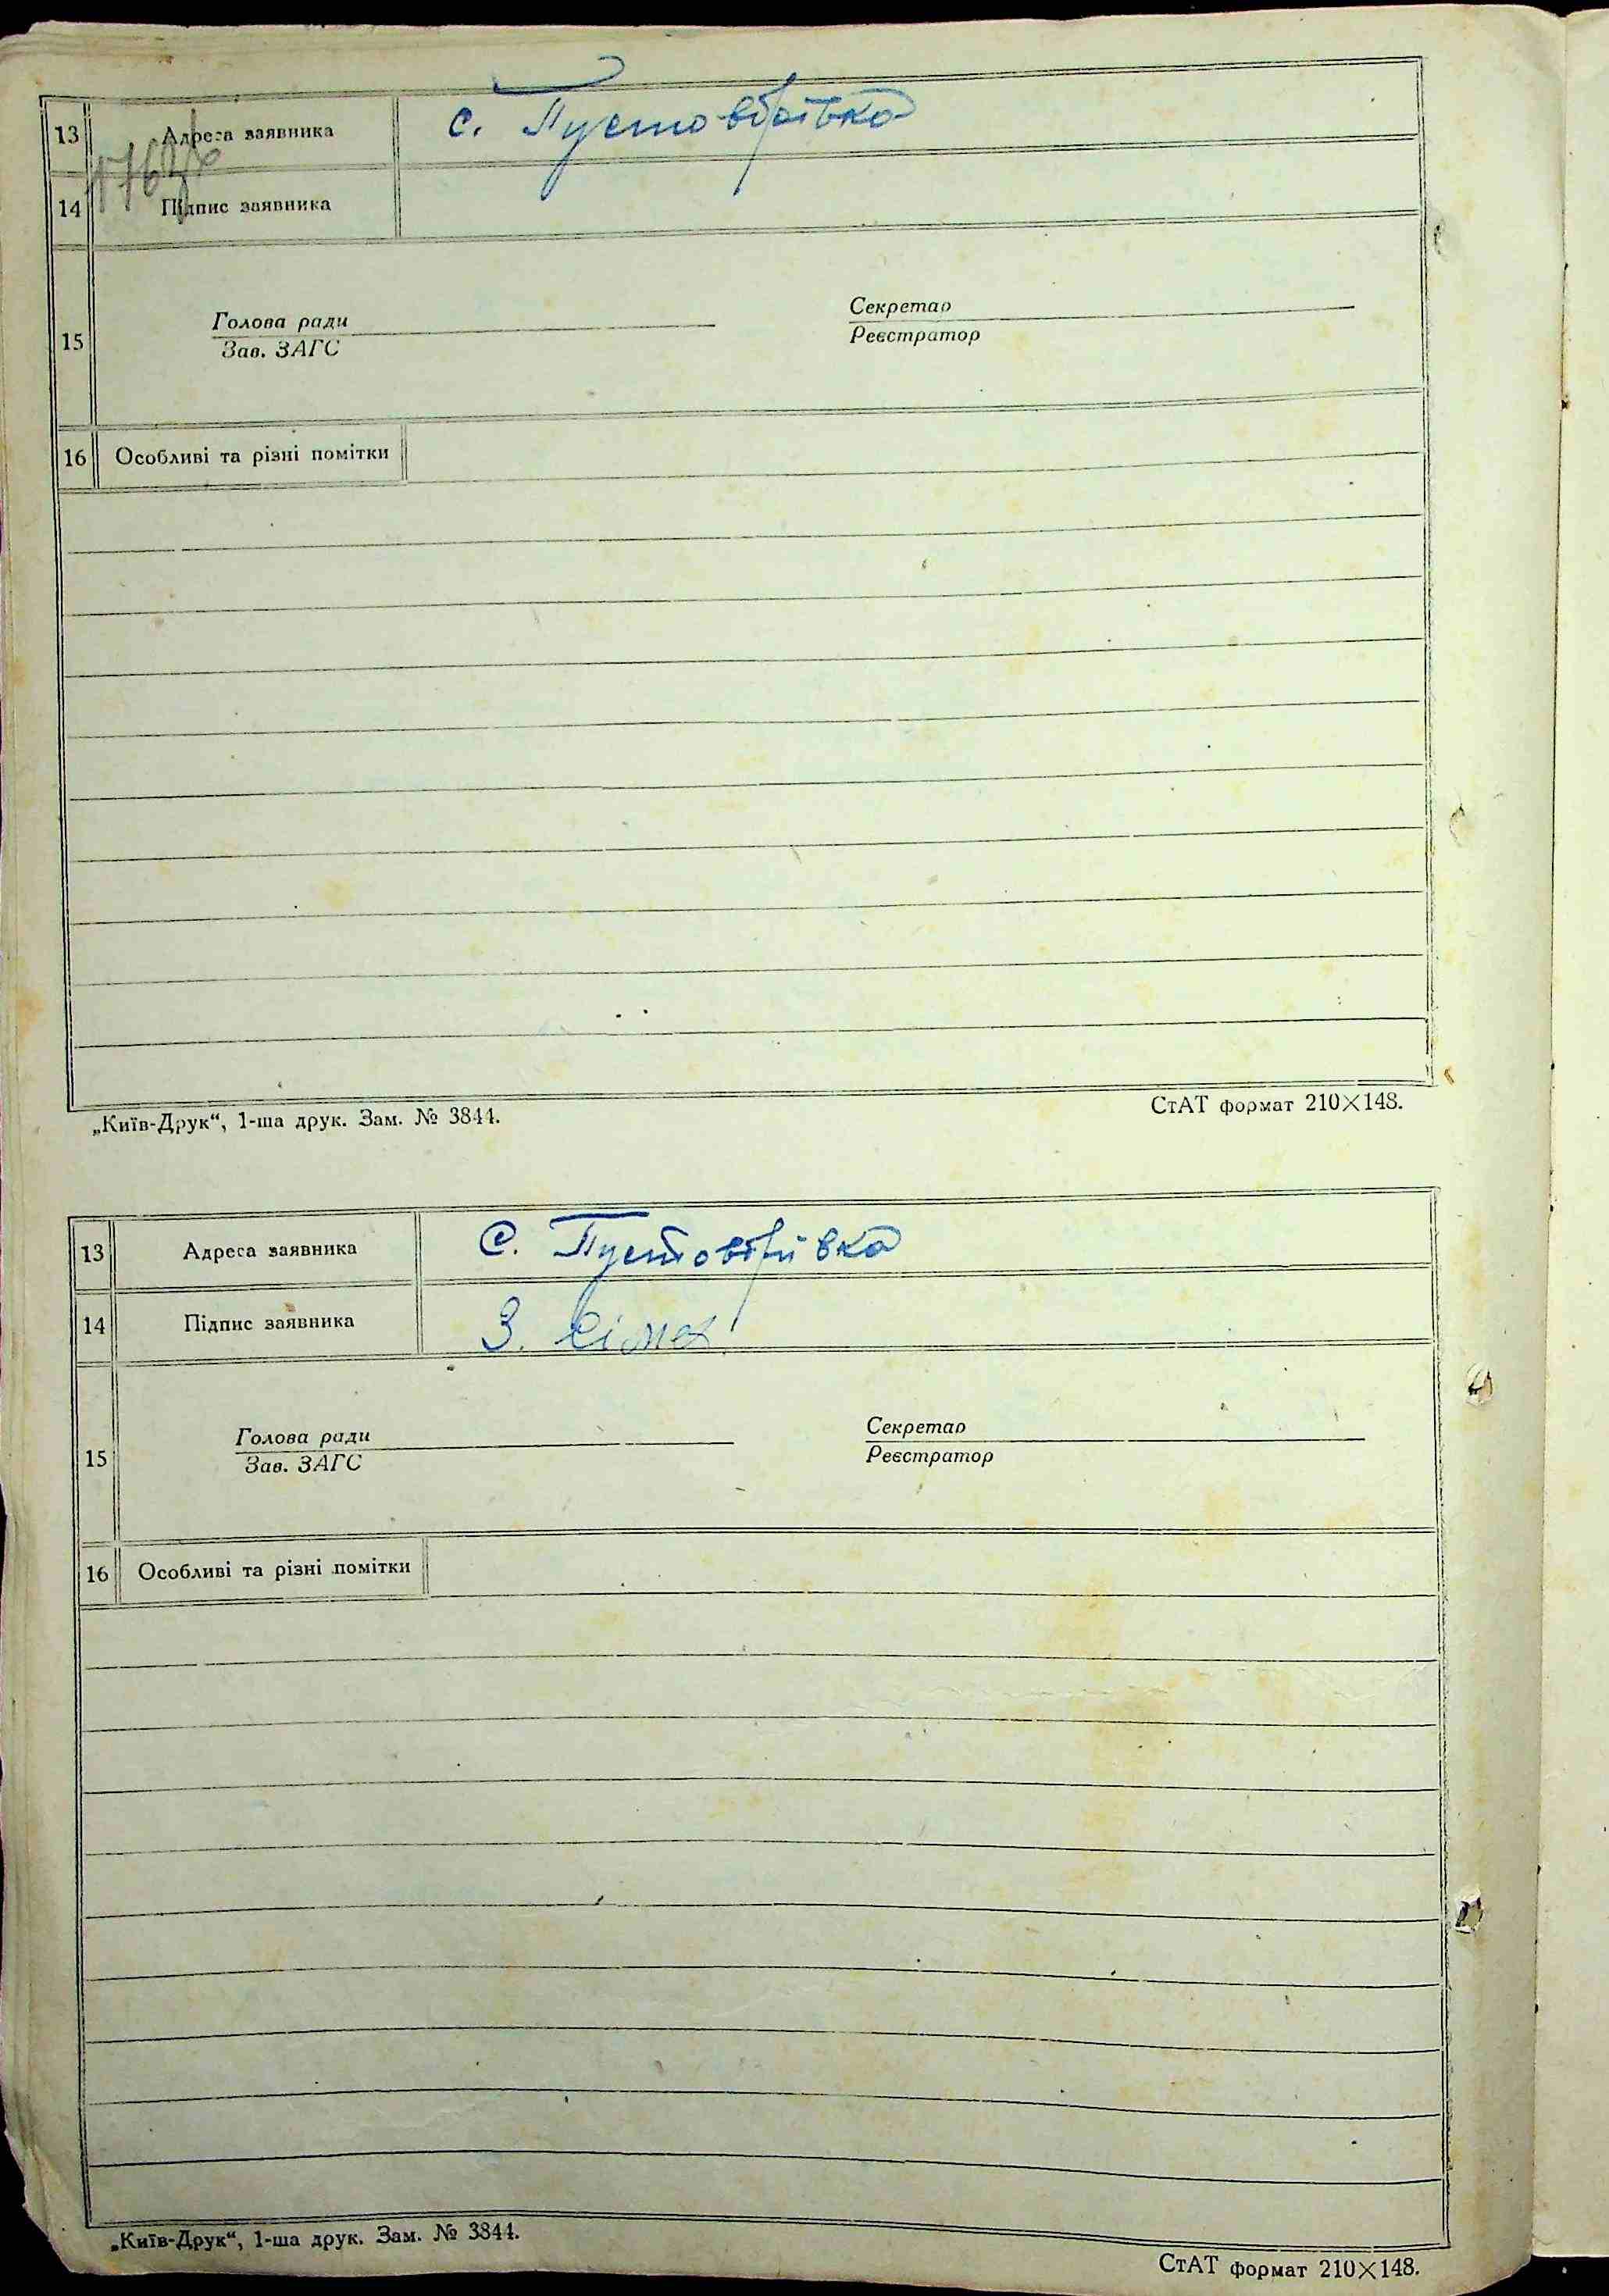 13 Адреса заявника с. Пустоварівка
14 Підпис заявника
15 Голова ради Секретар
Зав. ЗАГС Реєстратор
16 Особливі та різні помітки
„Київ-Друк“, 1-ша друк. Зам. № 3844. СтАТ формат 210×148.
13 Адреса заявника С. Пустоварівка
14 Підпис заявника З.
15 Голова ради Секретар
Зав. ЗАГС Реєстратор
16 Особливі та різні помітки
„Київ-Друк“, 1-ша друк. Зам. № 3844. СтАТ формат 210×148.